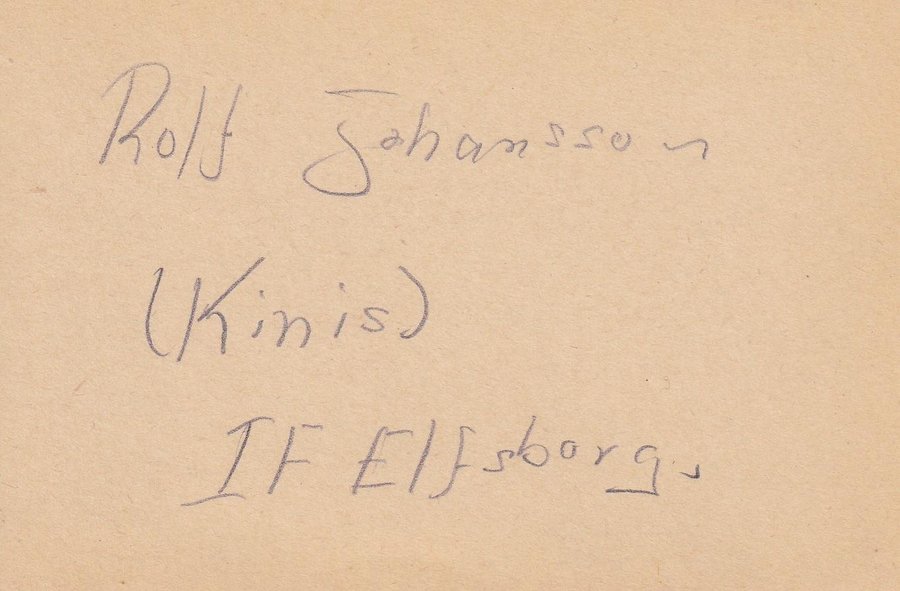 Rolf Johansson
(Kinis)
IF Elfsborg.